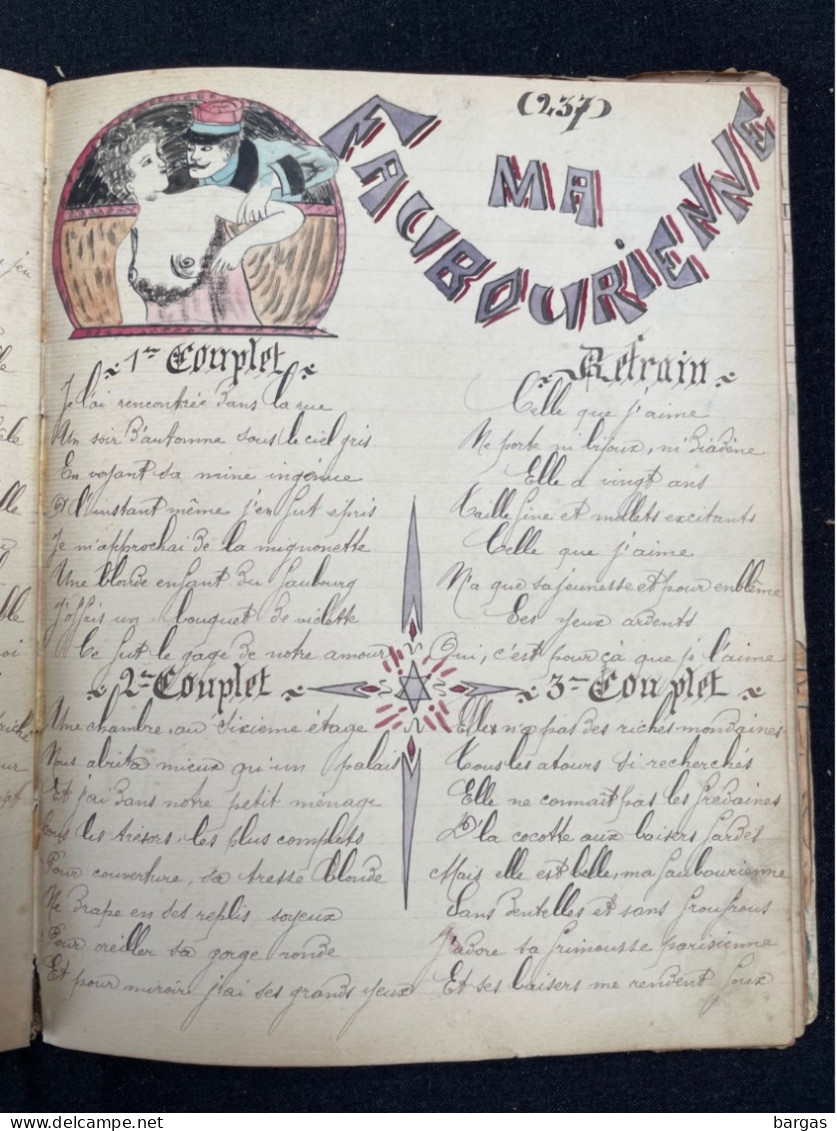 (237)
MA
FAUBOURIENNE
1er Couplet
Je l'ai rencontrée dans la rue
Un soir d'automne sous le ciel gris
En voyant sa mine ingénue
A l'instant même j'en fut épris
Je m'approchai de la mignonette
Une blonde enfant du faubourg
J'offris un bouquet de violette
Ce fut le gage de notre amour
Refrain
Celle que j'aime
Ne porte ni bijoux, ni diadène
Elle a vingt ans
Taille fine et mollets excitants
Celle que j'aime
N'a que sa jeunesse et pour enblême
Ses yeux ardents
Oui, c'est pour çà que je l'aime
2me Couplet
Une chambre au sixième étage
Nous abrita mieux qu'un palais
Et j'ai dans notre petit ménage
Tous les trésors, les plus complets
Pour couverture, sa tresse blonde
Me drape en ses replis soyeux
Pour oreiller sa gorge ronde
Et pour miroir j'ai ses grands yeux
3me Couplet
Elle n'a pas des riches mondaines
Tous les atours si recherchés
Elle ne connait pas les fredaines
D'la cocotte aux baisers fardés
Mais elle est belle, ma faubourienne
Sans dentelles et sans froufrous
J'adore sa frimousse parisienne
Et ses baisers me rendent foux
delcampe.net
bargas